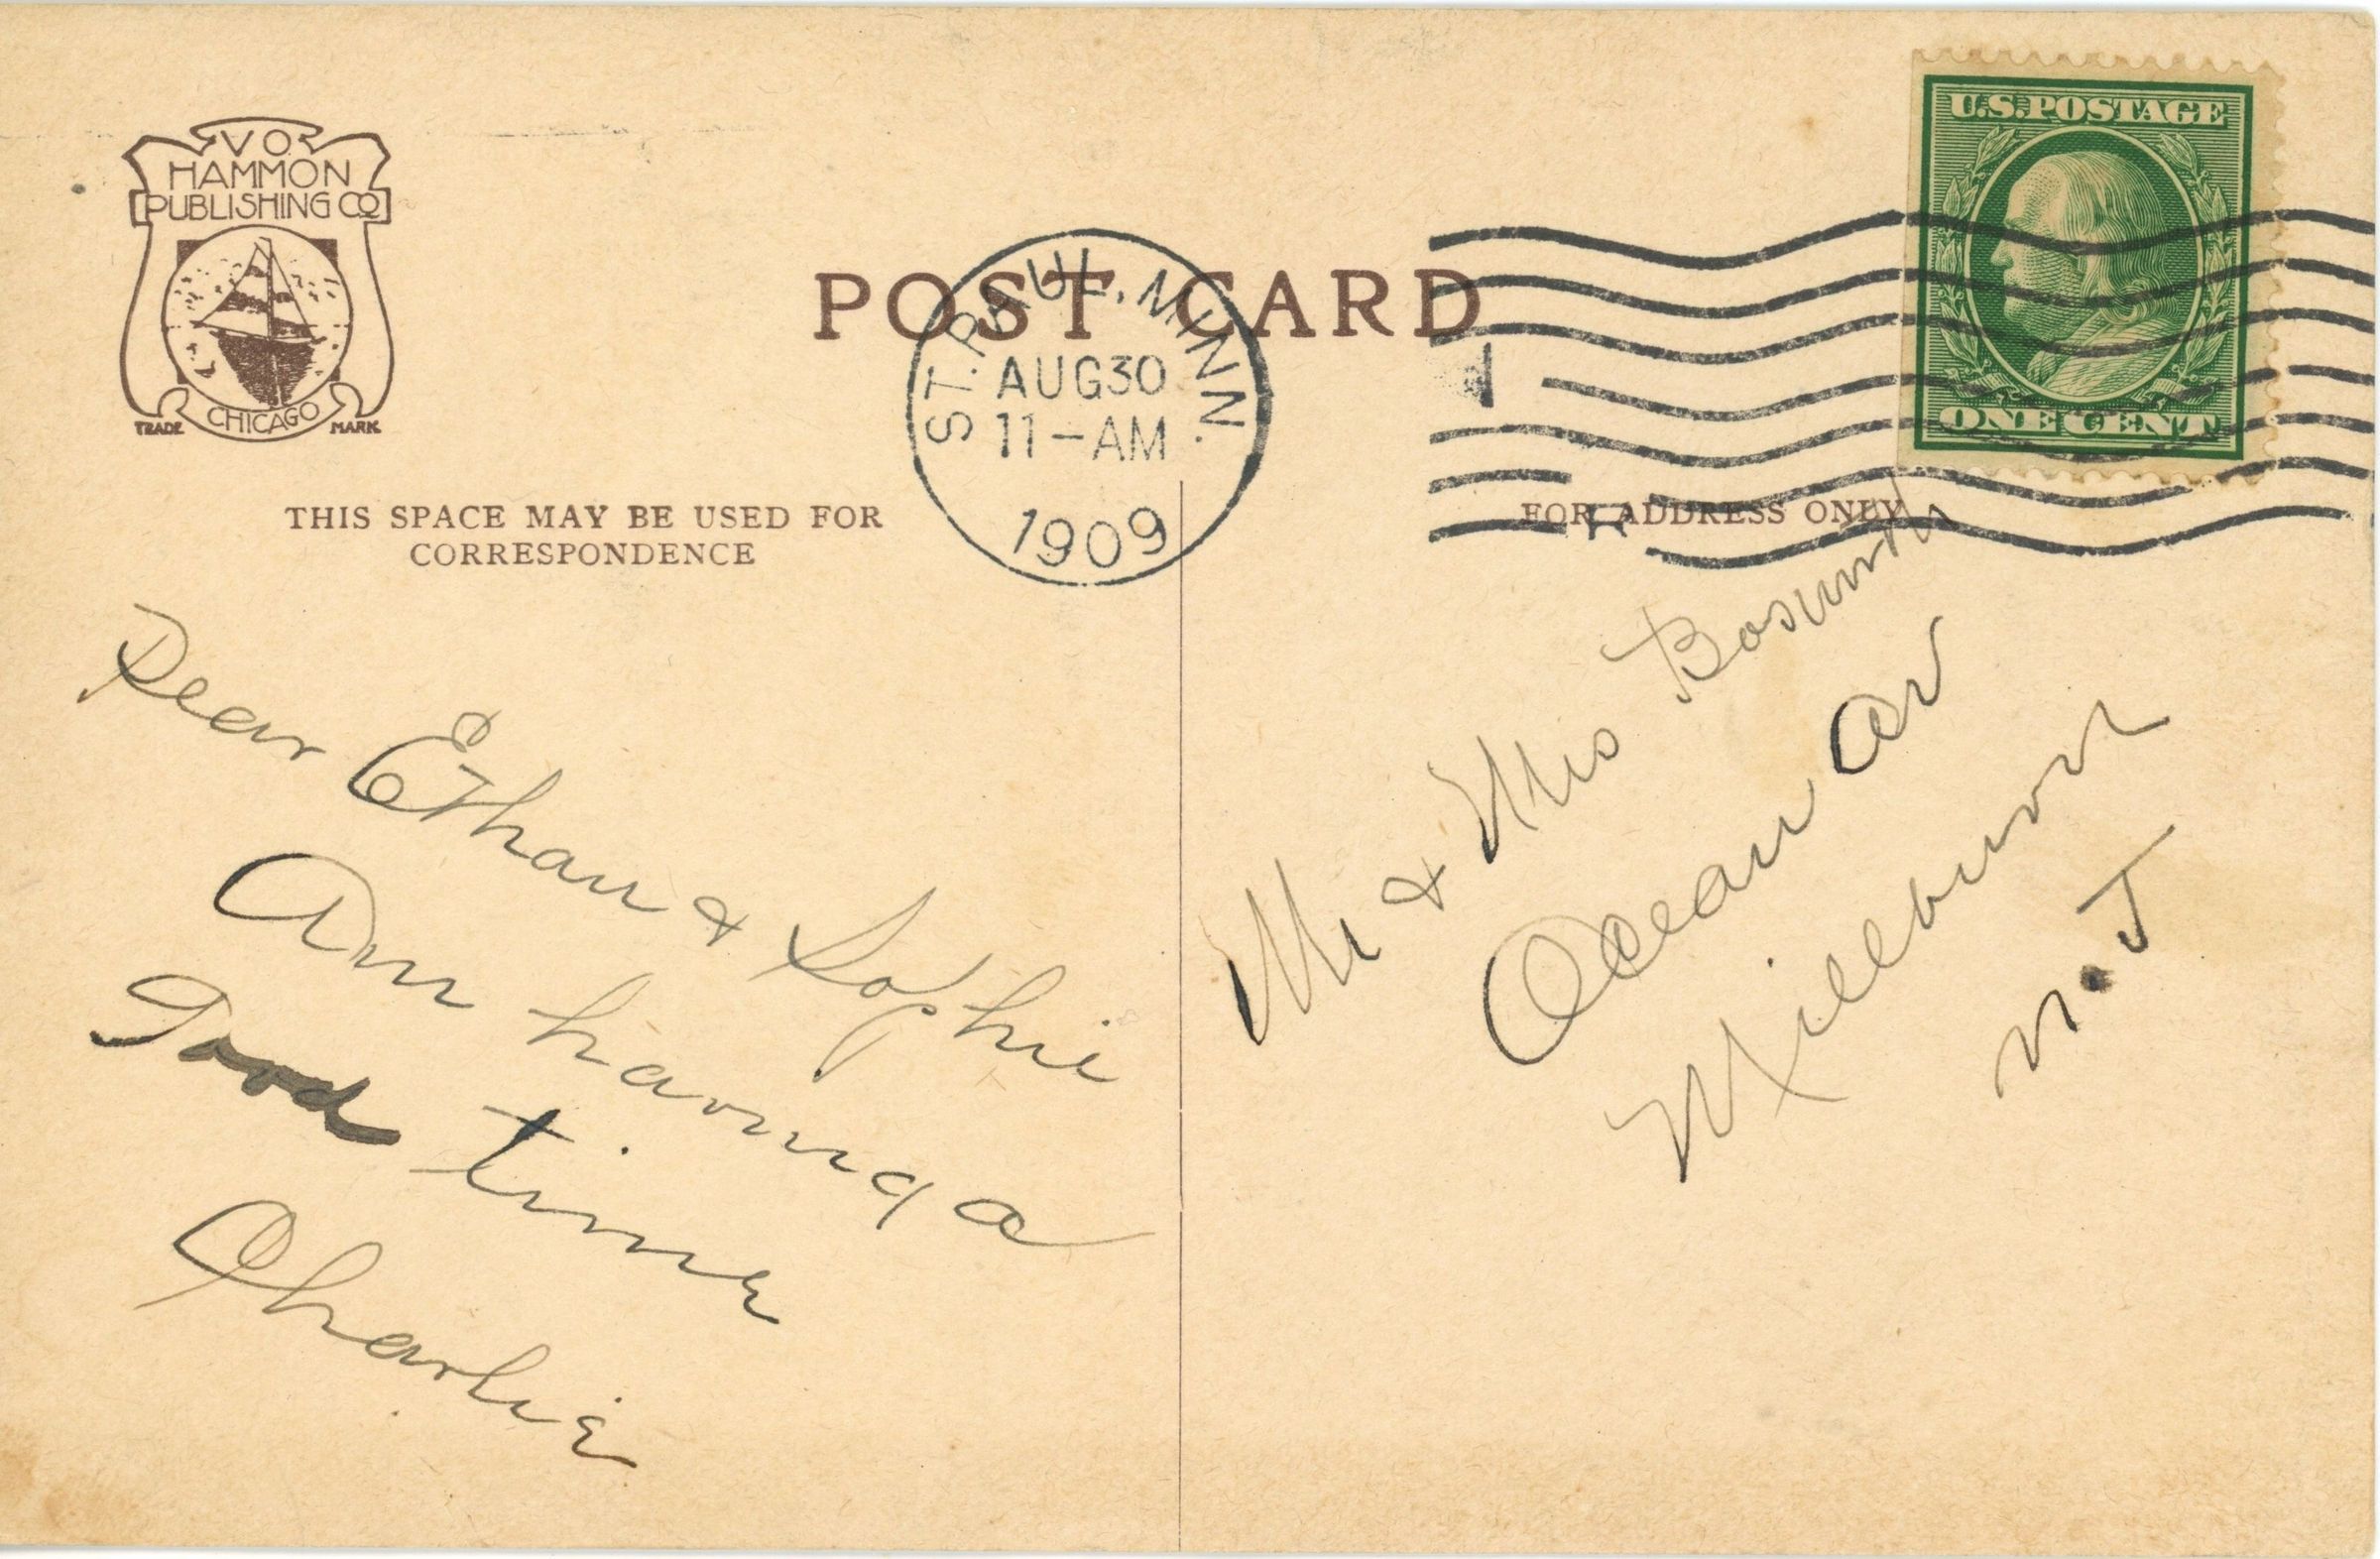 V.O.
HAMMON
PUBLISHING CO
CHICAGO
TRADE MARK
POST CARD
ST. PAUL, MINN.
AUG 30
11-AM
1909
1
U.S. POSTAGE
ONE CENT
THIS SPACE MAY BE USED FOR
CORRESPONDENCE
FOR ADDRESS ONLY
Dear Ethan & Sophie
Am having a
Good time
Charlie
Mr & Mrs Bosworth
Ocean Av
Millburn
N.J